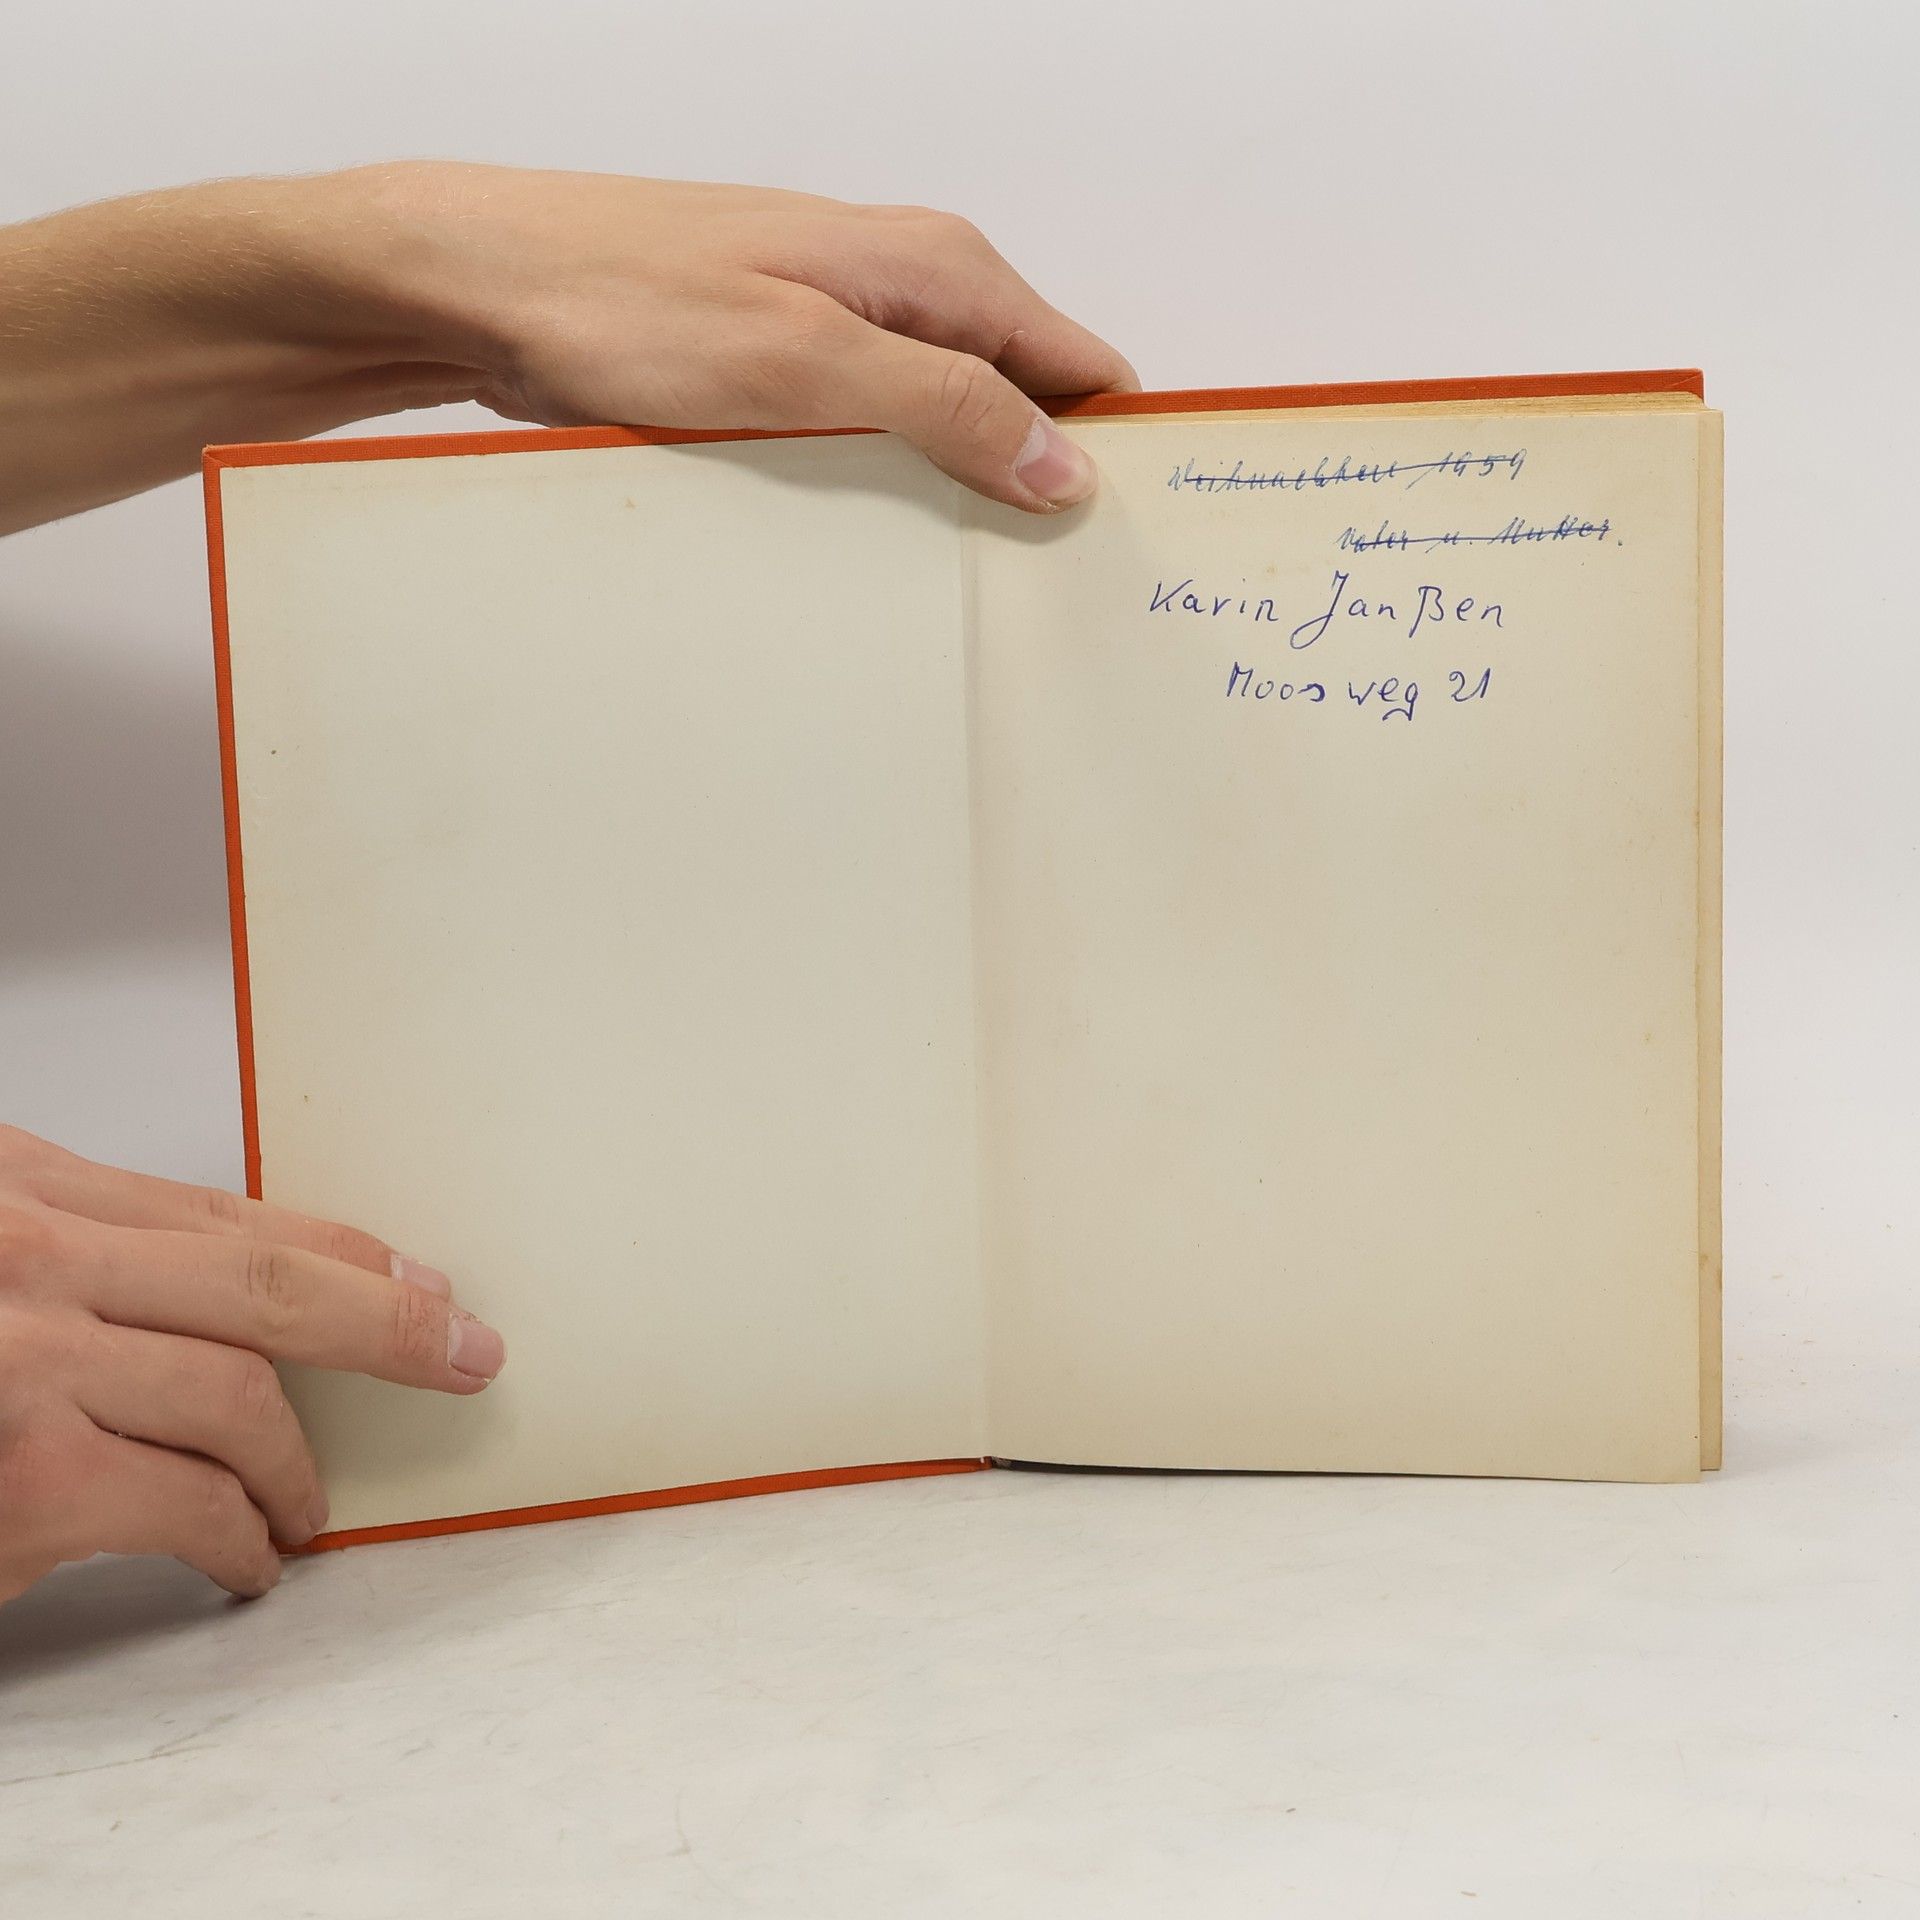 Weihnachten 1959
Vater u. Mutter.
Karin Janßen
Moosweg 21